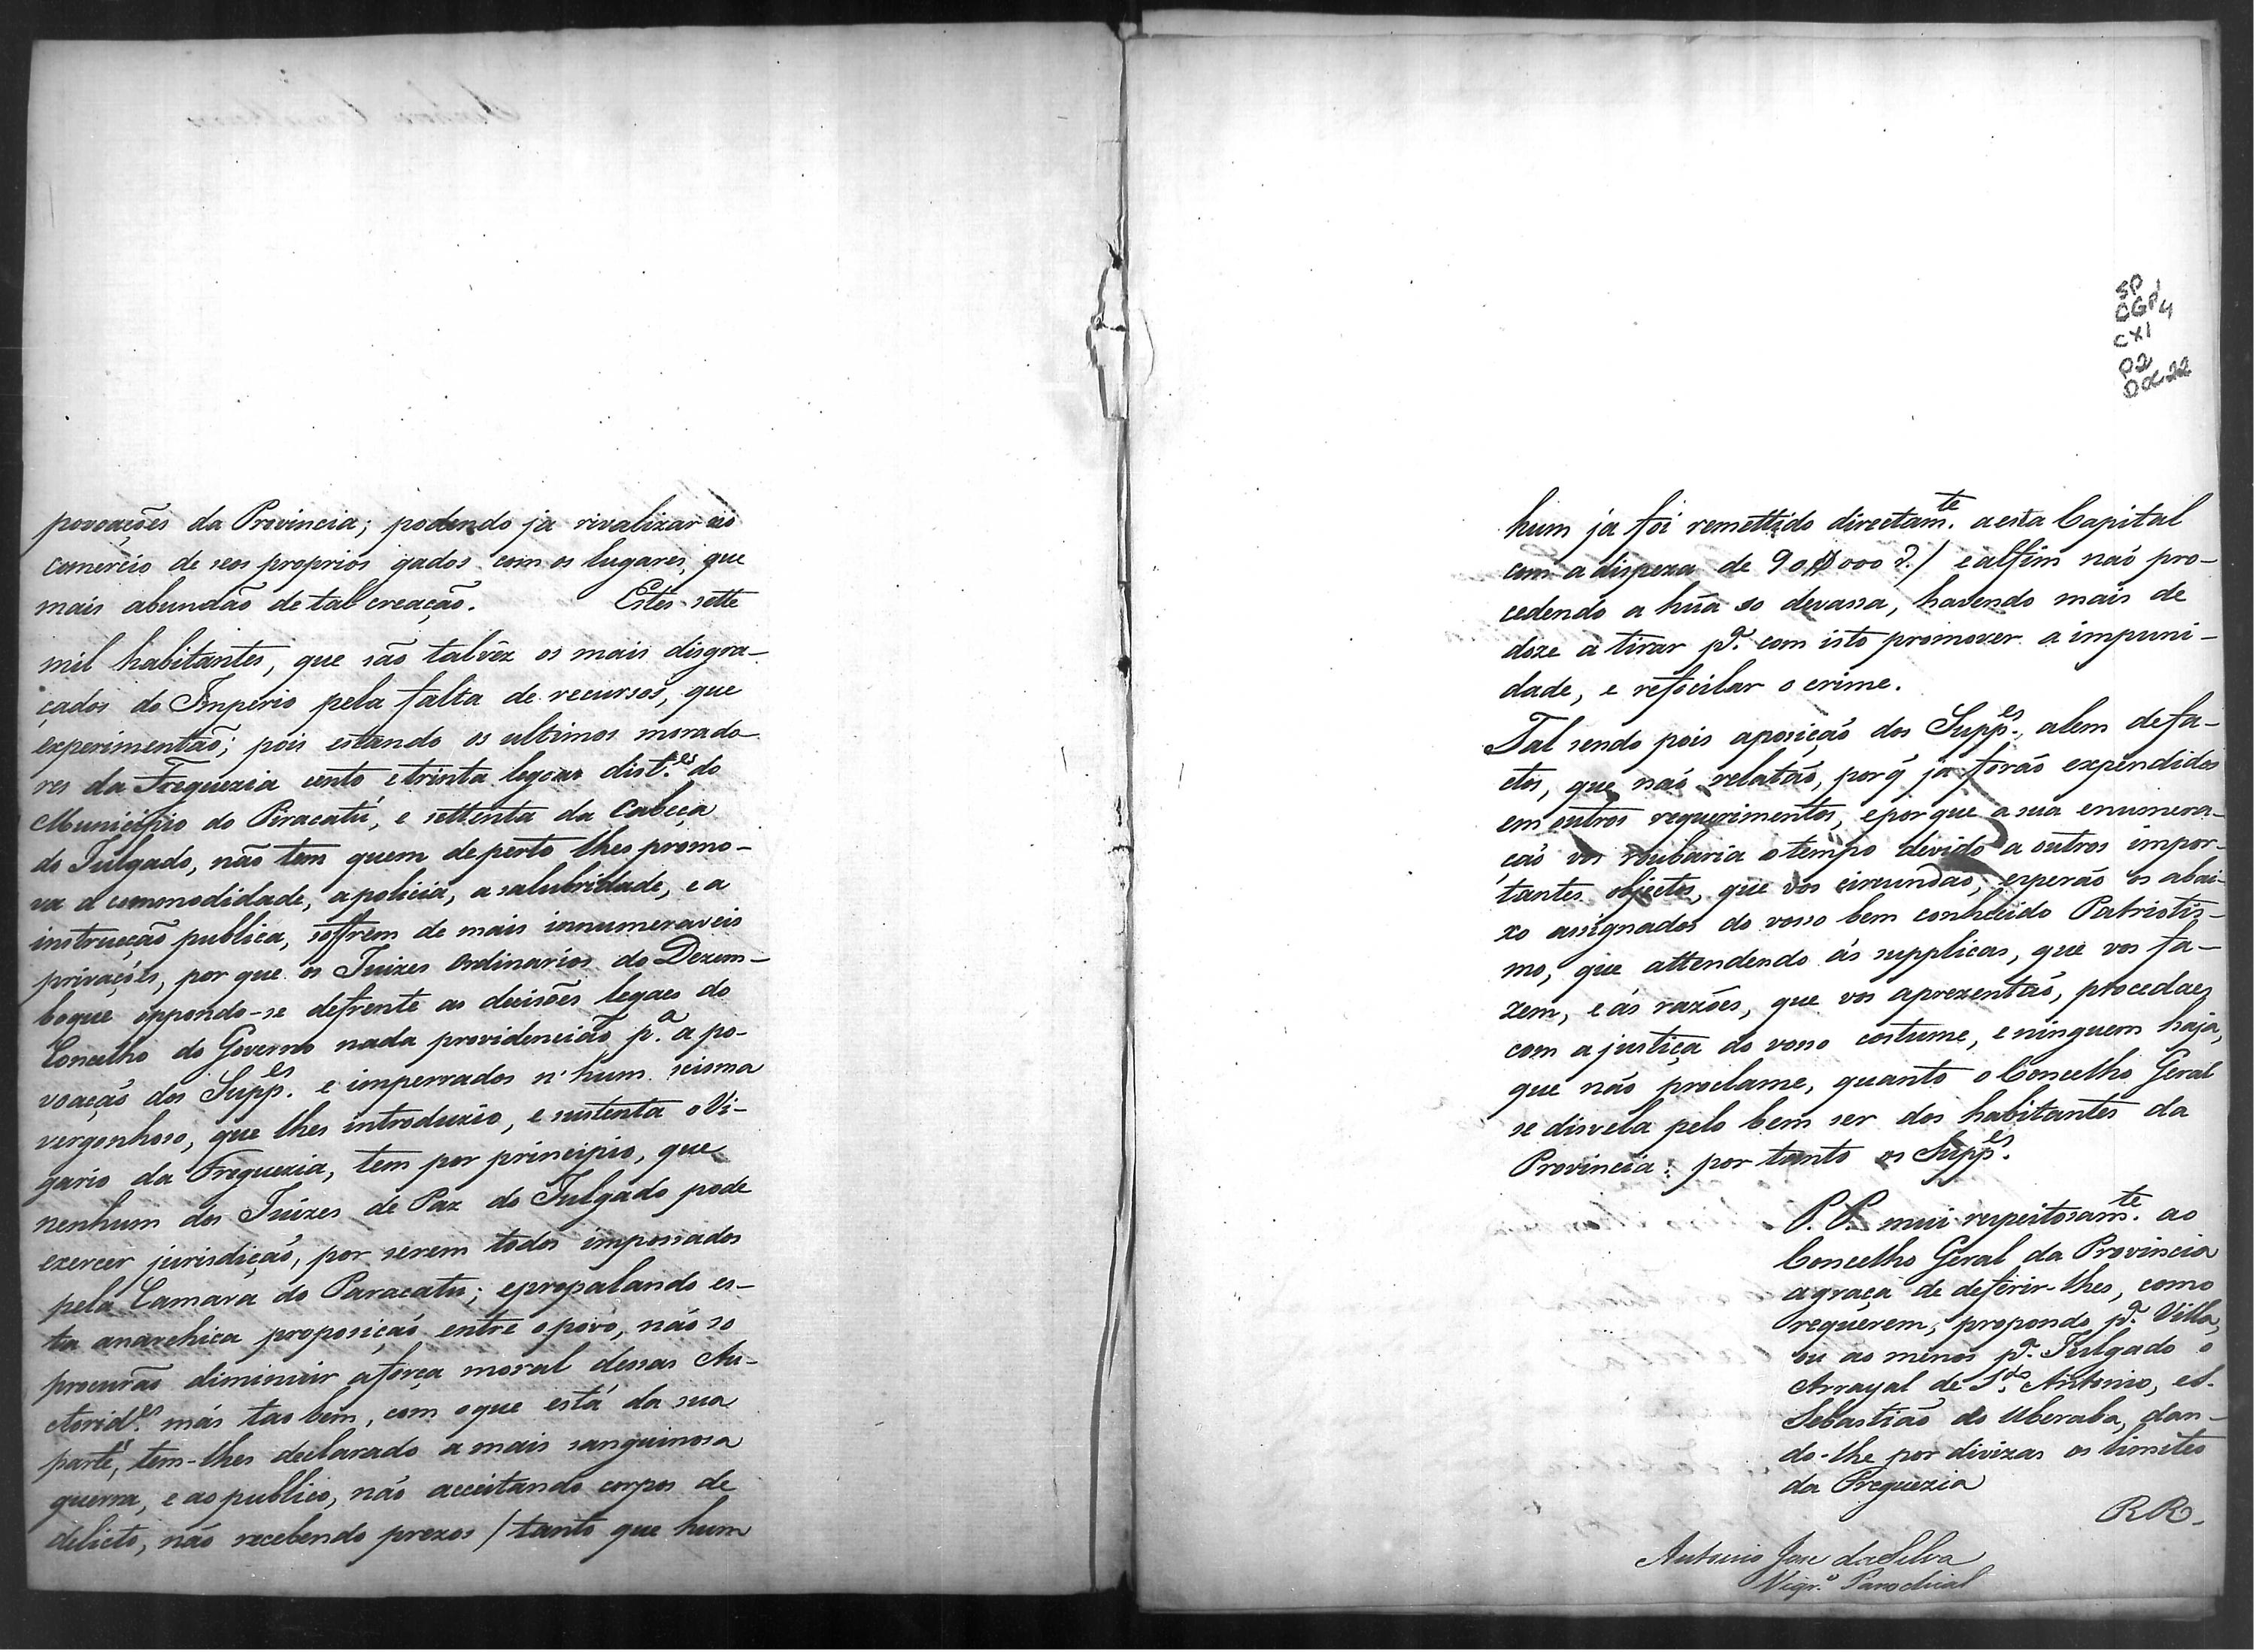 povoações da Provincia; podendo ja rivalizar no
comercio de seos proprios gados com os lugares, que
mais abundão de tal creação. Estes sette
mil habitantes, que são talvêz os mais disgra-
çados do Imperio pela falta de recursos, que
experimentão; pois estando os ultimos morado-
res da Freguezia cento e trinta legoas dist.es do
Municipio do Piracatú, e settenta da Cabeça
do Julgado, não tem quem de perto lhes promo-
va a commodidade, a policia, a salubridade, e a
instrucção publica, soffrem de mais innumeraveis
privações, por que os Juizes Ordinarios do Dezem-
boque oppondo-se defrente as decisões legaes do
Concelho do Governo nada providencião p.a a po-
voação dos Supp.es e imperrados n'hum scisma
vergonhoso, que lhes introduzio, e sustenta o Vi-
gario da Freguezia, tem por principio, que
nenhum dos Juizes de Paz do Julgado pode
exercer jurisdicção, por serem todos impossados
pela Camara do Paracatu; e propalando es-
ta anarchica proposição entre o povo, não so
procurão diminuir a força moral dessas Au-
ctorid.es más tao bem, com o que está da sua
parte, tem-lhes declarado a mais sanguinosa
guerra, e ao publico, não acceitando corpos de
delicto, não recebendo prezos / tanto que hum
SP 1
CGP 4
CX1
P2
DOC 22
hum ja foi remettido directam.te a esta Capital
com a dispeza de 90$000 r./ e alfim não pro-
cedendo a hũa so devassa, havendo mais de
doze a tirar p.a com isto promover a impuni-
dade, e refocilar o crime.
Tal sendo pois a posição dos Supp.es, alem de fa-
ctos, que não relatão, porq̃ ja forão expendidos
em outros requerimentos, e por que a sua enumera-
ção vos roubaria o tempo divido a outros impor-
tantes objectos, que vos circundão, esperão os abai-
xo assignados do vosso bem conhecido Patriotis-
mo, que attendendo ás supplicas, que vos fa-
zem, e ás razões, que vos aprezentão, procedaes
com a justiça do vosso costume, e ninguem haja,
que não proclame, quanto o Concelho Geral
se disvela pelo bem ser dos habitantes da
Provincia: por tanto os Supp.es
P. P. mui respeitosam.te ao
Concelho Geral da Provincia
a graça de deferir-lhes, como
requerem, propondo p.a Villa,
ou ao menos p.a Julgado o
Arrayal de S.to Antonio, e S.
Sebastião do Uberaba, dan-
do-lhe por divizas os limites
da Freguezia
RR.
Antonio Jose da Silva
Vigr.o Parochial